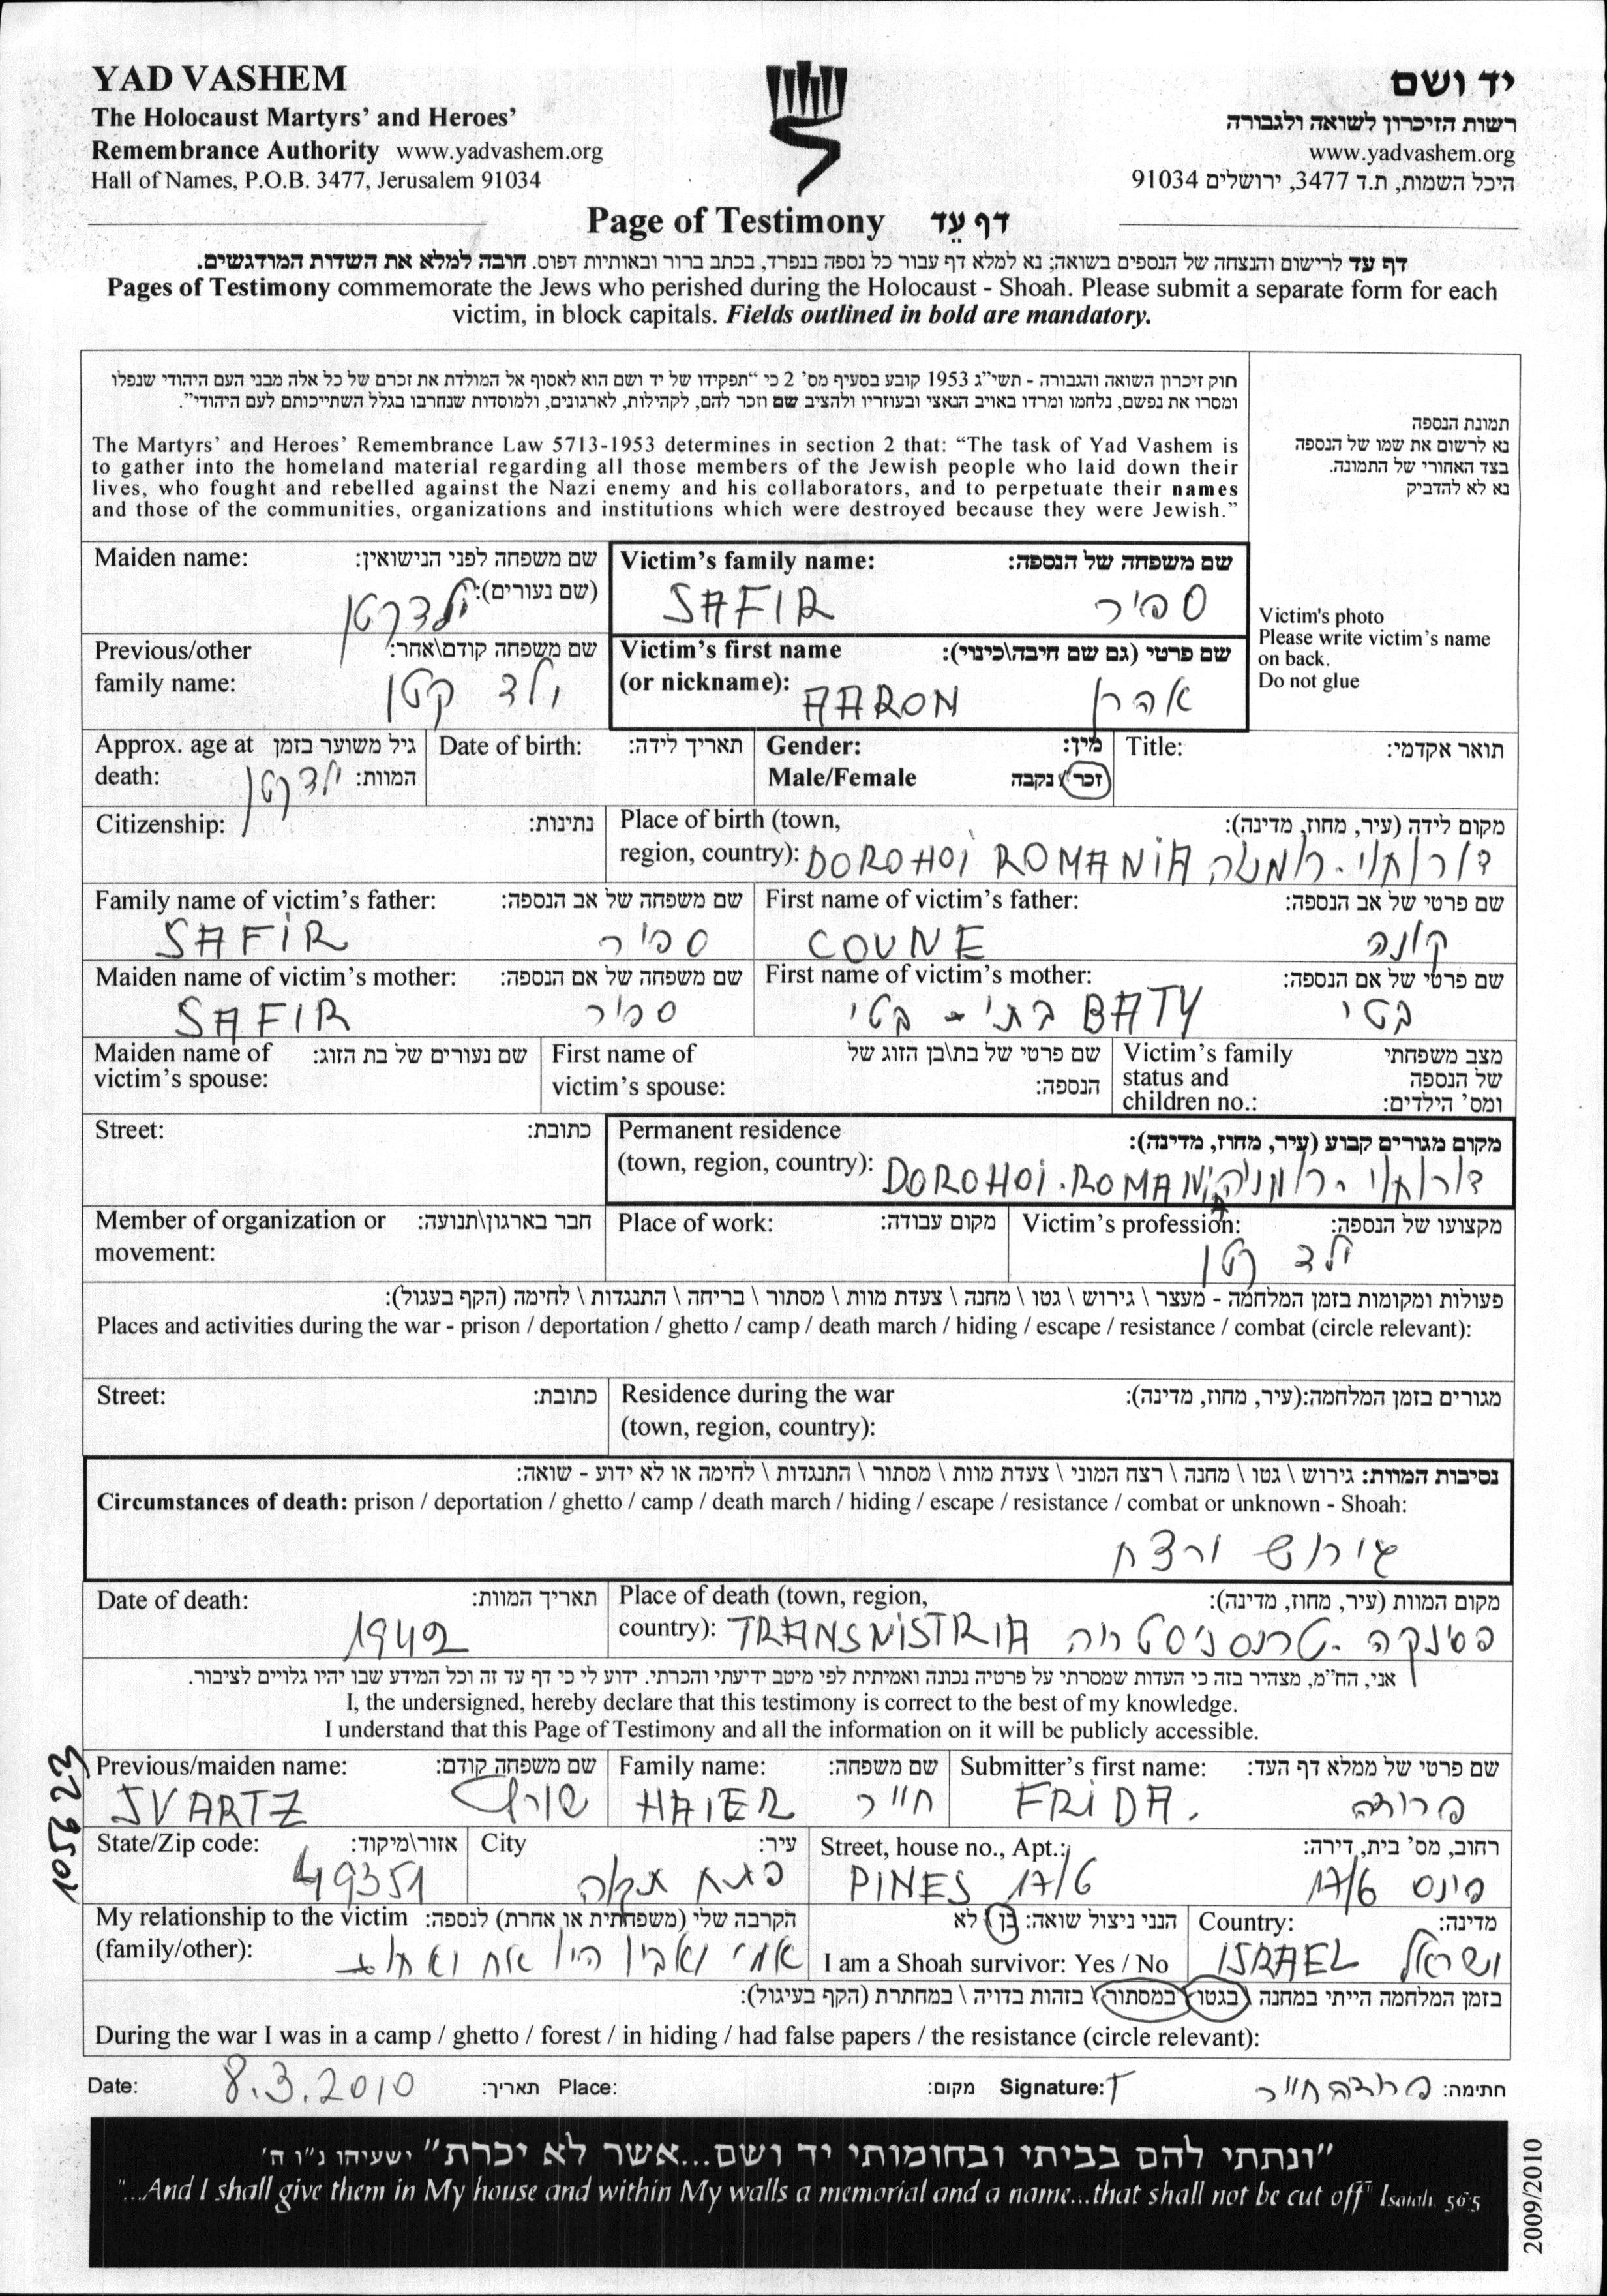 YAD VASHEM
The Holocaust Martyrs' and Heroes'
Remembrance Authority www.yadvashem.org
Hall of Names, P.O.B. 3477, Jerusalem 91034
יד ושם
רשות הזיכרון לשואה ולגבורה
www.yadvashem.org
היכל השמות, ת.ד 3477, ירושלים 91034
Page of Testimony דף עֵד
דף עד לרישום והנצחה של הנספים בשואה; נא למלא דף עבור כל נספה בנפרד, בכתב ברור ובאותיות דפוס. חובה למלא את השדות המודגשים.
Pages of Testimony commemorate the Jews who perished during the Holocaust - Shoah. Please submit a separate form for each
victim, in block capitals. Fields outlined in bold are mandatory.
חוק זיכרון השואה והגבורה - תשי"ג 1953 קובע בסעיף מס' 2 כי "תפקידו של יד ושם הוא לאסוף אל המולדת את זכרם של כל אלה מבני העם היהודי שנפלו
ומסרו את נפשם, נלחמו ומרדו באויב הנאצי ובעוזריו ולהציב שם וזכר להם, לקהילות, לארגונים, ולמוסדות שנחרבו בגלל השתייכותם לעם היהודי".
The Martyrs' and Heroes' Remembrance Law 5713-1953 determines in section 2 that: "The task of Yad Vashem is
to gather into the homeland material regarding all those members of the Jewish people who laid down their
lives, who fought and rebelled against the Nazi enemy and his collaborators, and to perpetuate their names
and those of the communities, organizations and institutions which were destroyed because they were Jewish."
תמונת הנספה
נא לרשום את שמו של הנספה
בצד האחורי של התמונה.
נא לא להדביק
Victim's photo
Please write victim's name
on back.
Do not glue
Maiden name: שם משפחה לפני הנישואין:
(שם נעורים): ילד קטן
Victim's family name: שם משפחה של הנספה:
SAFIR ספיר
Previous/other שם משפחה קודם\אחר:
family name: ילד קטן
Victim's first name שם פרטי (גם שם חיבה\כינוי):
(or nickname): AARON אהרן
Approx. age at גיל משוער בזמן
death: המוות: ילד קטן
Date of birth: תאריך לידה:
Gender: מין:
Male/Female זכר\נקבה
Title: תואר אקדמי:
Citizenship: נתינות:
Place of birth (town, מקום לידה (עיר, מחוז, מדינה):
region, country): DOROHOI ROMANIA
Family name of victim's father: שם משפחה של אב הנספה:
SAFIR ספיר
First name of victim's father: שם פרטי של אב הנספה:
COUNE קונה
Maiden name of victim's mother: שם משפחה של אם הנספה:
SAFIR ספיר
First name of victim's mother: שם פרטי של אם הנספה:
בתי - בטי BATY בטי
Maiden name of שם נעורים של בת הזוג:
victim's spouse:
First name of שם פרטי של בת\בן הזוג של
victim's spouse: הנספה:
Victim's family מצב משפחתי
status and של הנספה
children no.: ומס' הילדים:
Street: כתובת:
Permanent residence מקום מגורים קבוע (עיר, מחוז, מדינה):
(town, region, country): DOROHOI.
Member of organization or חבר בארגון\תנועה:
movement:
Place of work: מקום עבודה:
Victim's profession: מקצועו של הנספה:
ילד קטן
פעולות ומקומות בזמן המלחמה - מעצר \ גירוש \ גטו \ מחנה \ צעדת מוות \ מסתור \ בריחה \ התנגדות \ לחימה (הקף בעגול):
Places and activities during the war - prison / deportation / ghetto / camp / death march / hiding / escape / resistance / combat (circle relevant):
Street: כתובת:
Residence during the war מגורים בזמן המלחמה:(עיר, מחוז, מדינה):
(town, region, country):
נסיבות המוות: גירוש \ גטו \ מחנה \ רצח המוני \ צעדת מוות \ מסתור \ התנגדות \ לחימה או לא ידוע - שואה:
Circumstances of death: prison / deportation / ghetto / camp / death march / hiding / escape / resistance / combat or unknown - Shoah:
גירוש ורצח
Date of death: תאריך המוות:
1942
Place of death (town, region, מקום המוות (עיר, מחוז, מדינה):
country): TRANSNISTRIA
אני, הח"מ, מצהיר בזה כי העדות שמסרתי על פרטיה נכונה ואמיתית לפי מיטב ידיעתי והכרתי. ידוע לי כי דף עד זה וכל המידע שבו יהיו גלויים לציבור.
I, the undersigned, hereby declare that this testimony is correct to the best of my knowledge.
I understand that this Page of Testimony and all the information on it will be publicly accessible.
105623
Previous/maiden name: שם משפחה קודם:
SVARTZ שורץ
Family name: שם משפחה:
HAIER חייר
Submitter's first name: שם פרטי של ממלא דף העד:
FRIDA. פרידה
State/Zip code: אזור\מיקוד:
49351
City עיר:
פתח תקוה
Street, house no., Apt.: רחוב, מס' בית, דירה:
PINES 17/6 פינס 17/6
My relationship to the victim הקרבה שלי (משפחתית או אחרת) לנספה:
(family/other): אמי ואביו היו אח ואחות
הנני ניצול שואה: כן \ לא
I am a Shoah survivor: Yes / No
Country: מדינה:
ISRAEL ישראל
בזמן המלחמה הייתי במחנה \ בגטו \ במסתור \ בזהות בדויה \ במחתרת (הקף בעיגול):
During the war I was in a camp / ghetto / forest / in hiding / had false papers / the resistance (circle relevant):
Date: 8.3.2010 תאריך: Place: מקום: Signature: חתימה: פרידה חייר
"ונתתי להם בביתי ובחומותי יד ושם...אשר לא יכרת" ישעיהו נ"ו ה'
"...And I shall give them in My house and within My walls a memorial and a name...that shall not be cut off" Isaiah, 56:5
2009/2010